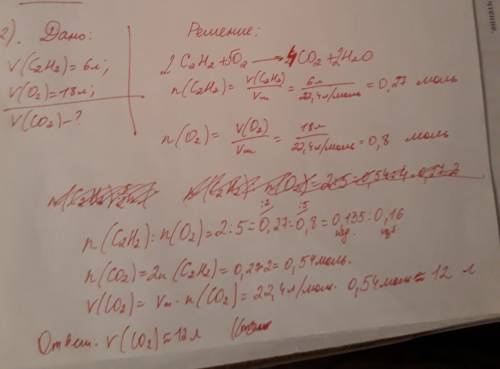 2). Дано:
V(C2H2)=6л;
V(O2)=18л;
V(CO2)-?
Решение:
2C2H2+5O2 → 4CO2+2H2O
n(C2H2)= V(C2H2)/Vm = 6л/22,4л/моль = 0,27 моль
n(O2)= V(O2)/Vm = 18л/22,4л/моль = 0,8 моль
n(C2H2):n(O2)=2:5=0,27:0,8=0,135:0,16
:2 :5
нед. изб
n(CO2)=2n(C2H2)=0,27·2=0,54моль.
V(CO2)=Vm·n(CO2)=22,4л/моль·0,54моль≈12 л
Ответ: V(CO2)≈12л